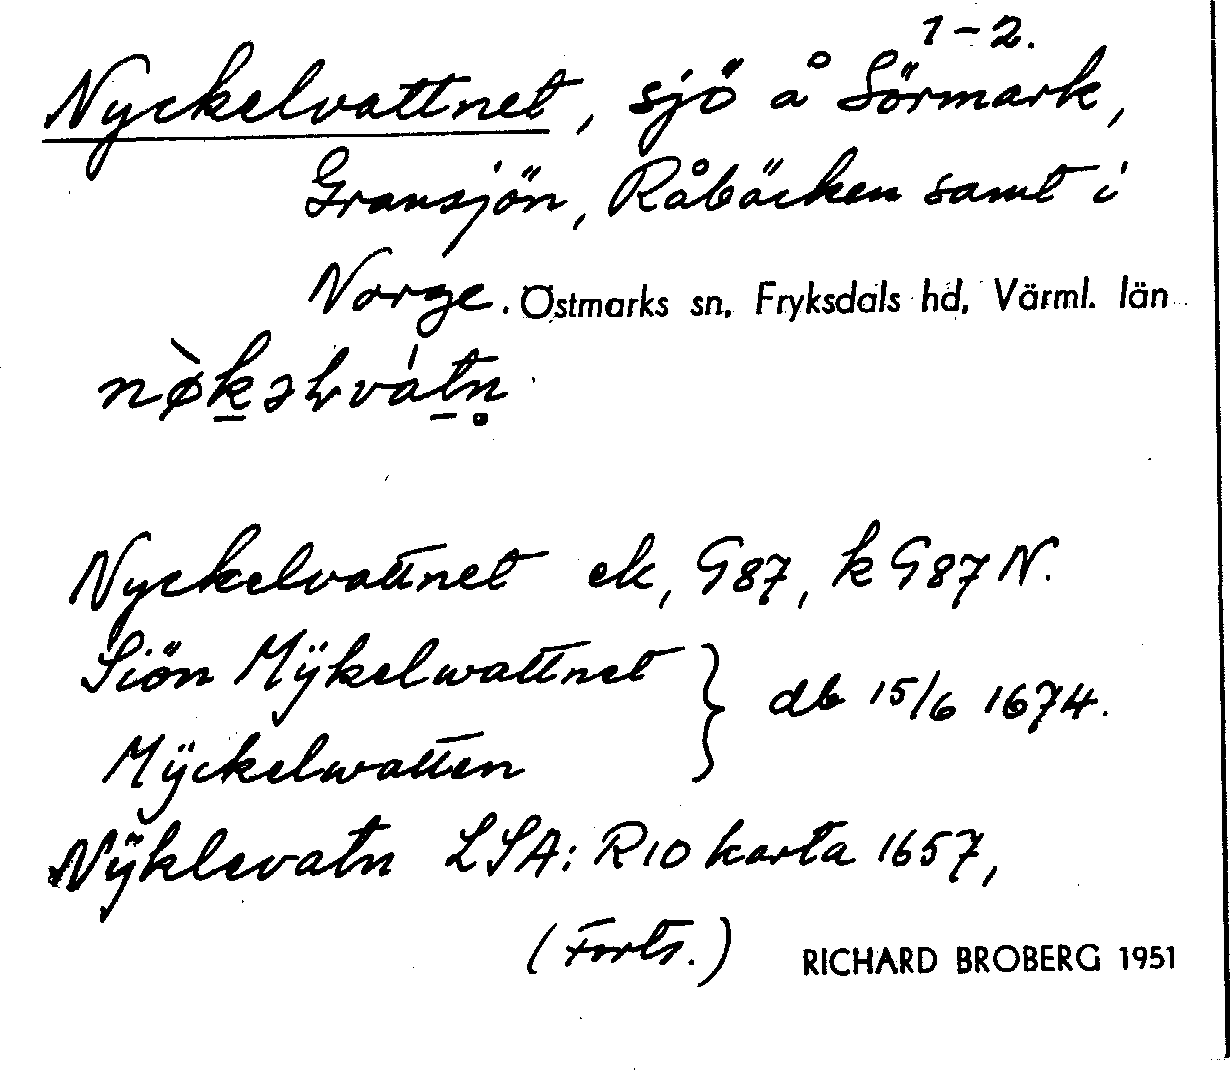 1-2.
Nyckelvattnet, sjö å Sörmark,
Gransjön, Råbäcken samt i
Norge. Östmarks sn, Fryksdals hd, Värml. län
nø̀kəɫvátn̥
Nyckelvattnet ek, G87, k G87 N.
Siön Mÿkelwattnet
Mÿckelwatten } db 15/6 1674.
Nÿklevatn LSA: R10 karta 1657,
(Forts.) RICHARD BROBERG 1951